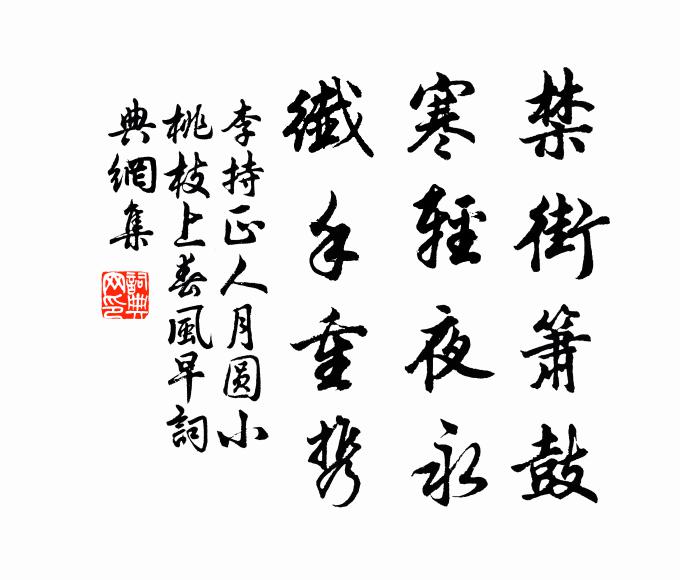 禁街箫鼓
寒轻夜永
纖手重携
李持正人月圆小
桃枝上春風早詞
典網集
詞典
网印